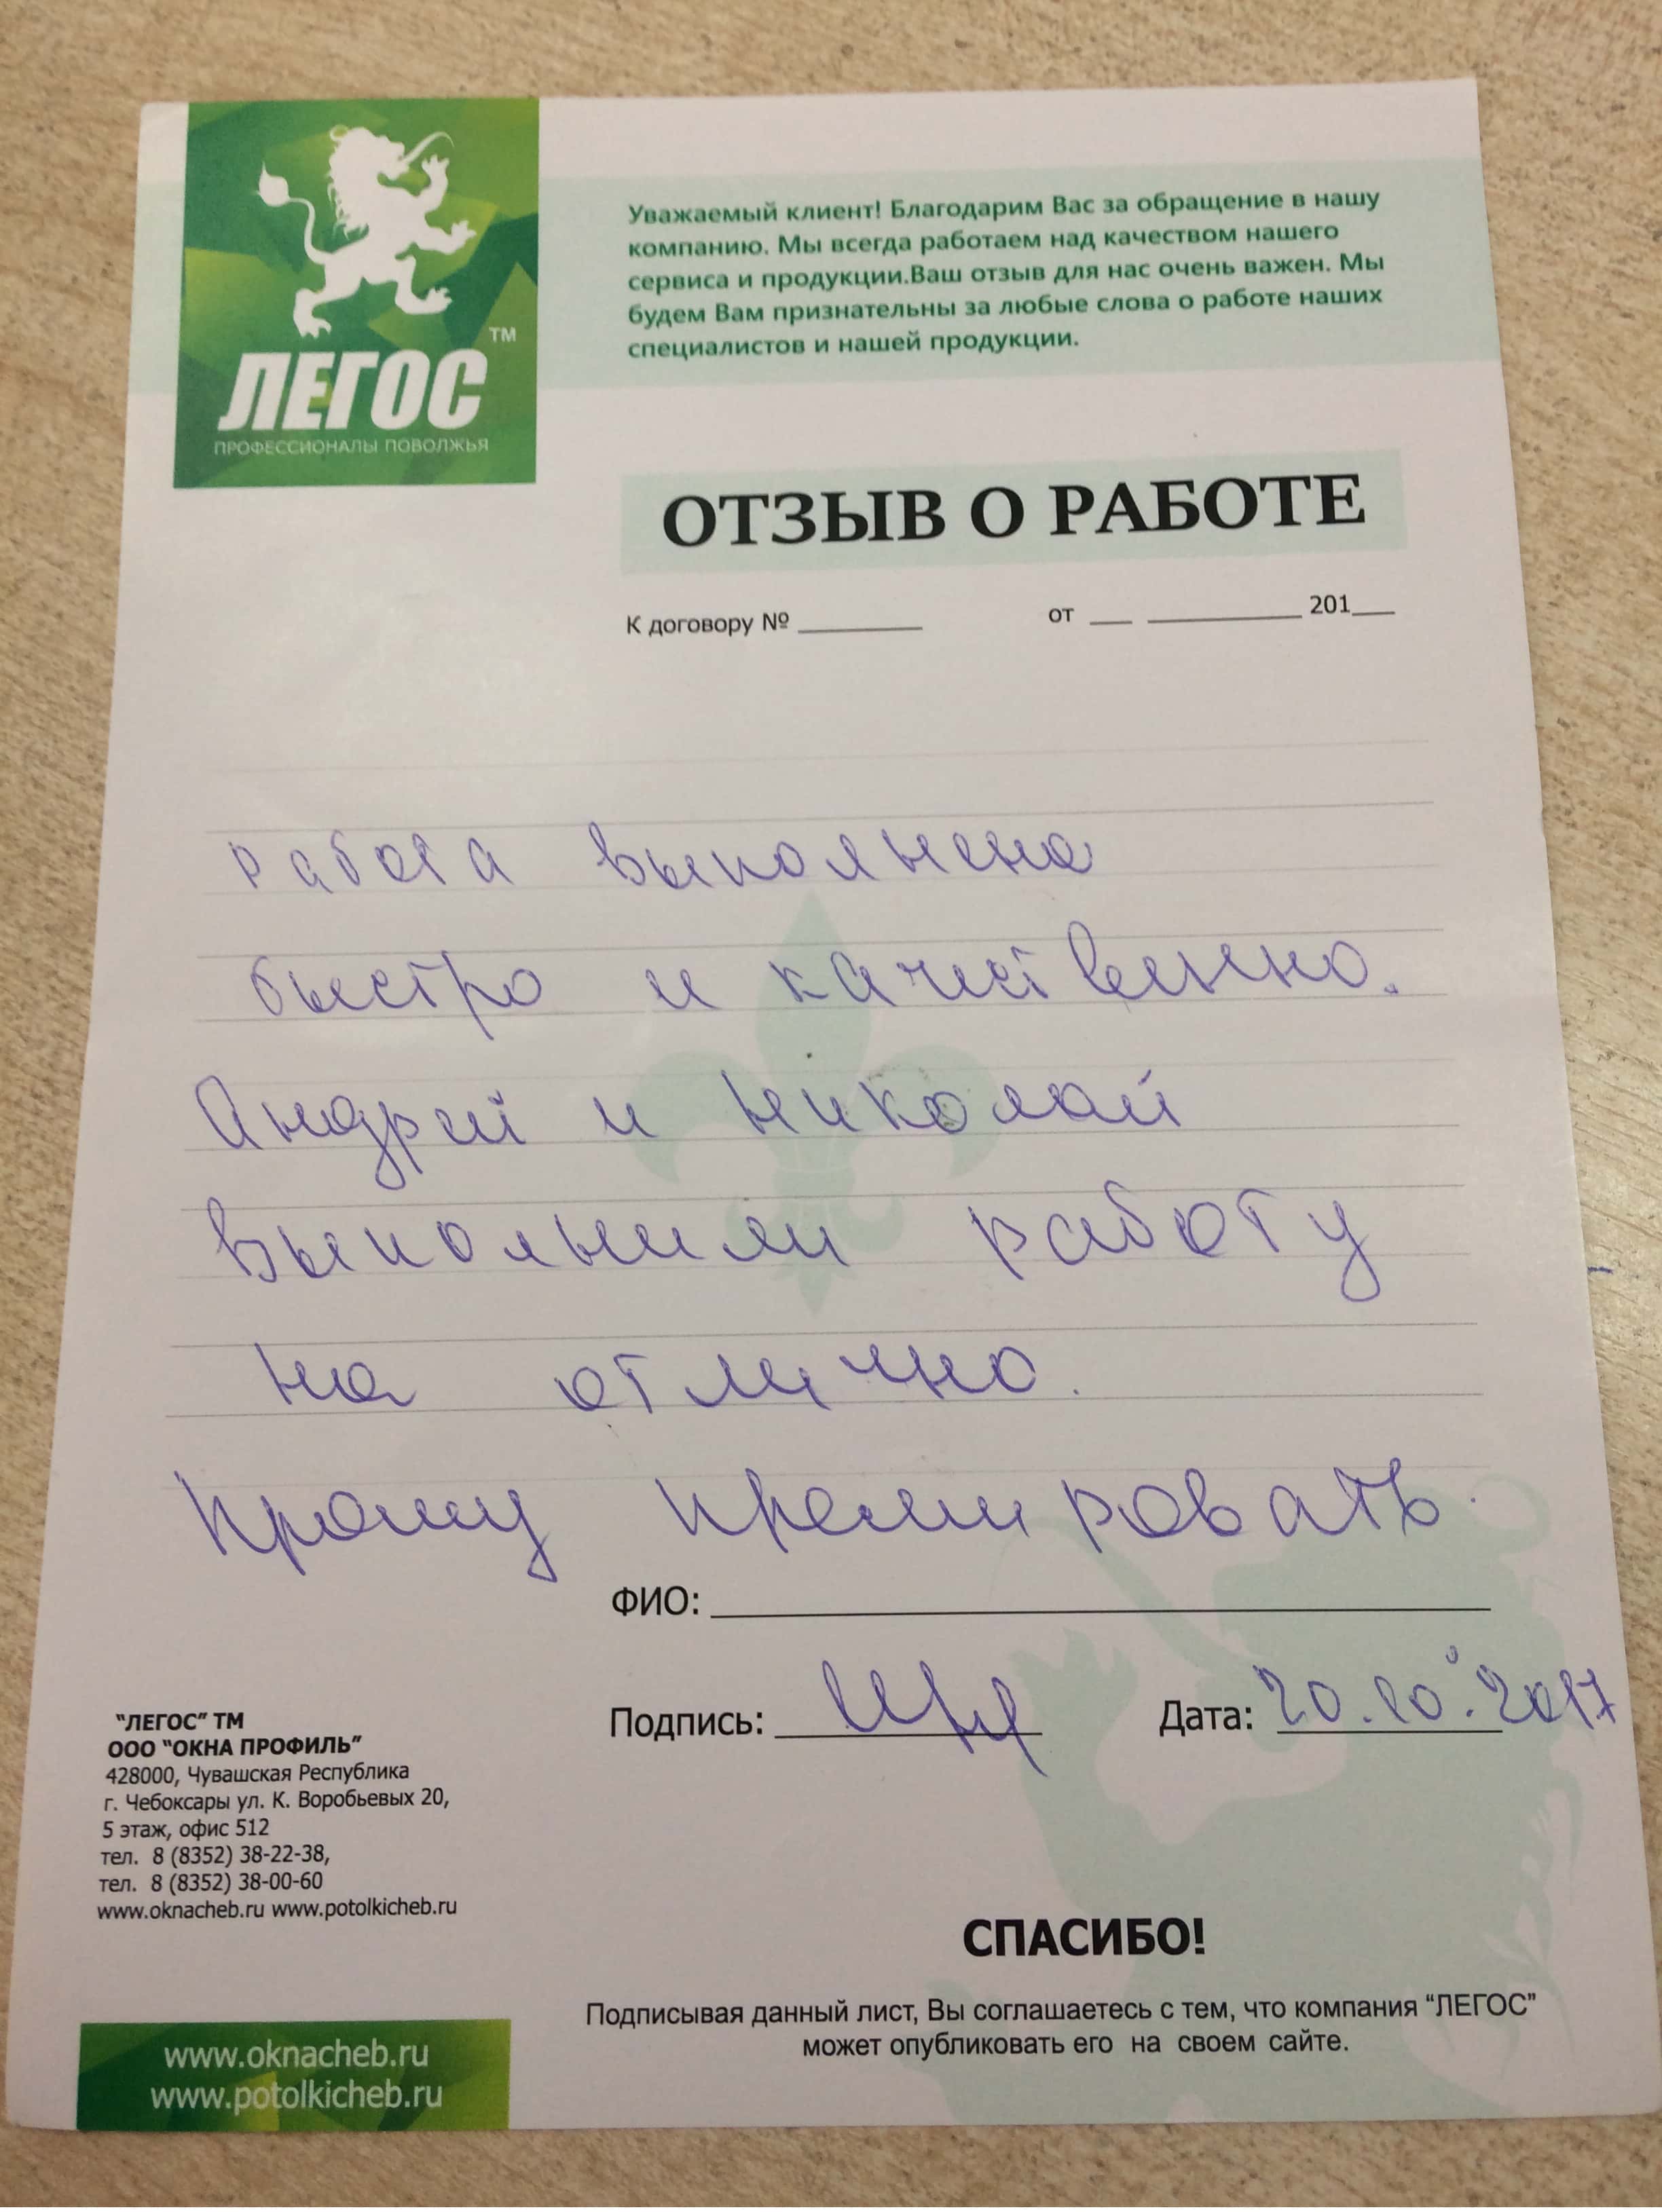 ТМ
ЛЕГОС
ПРОФЕССИОНАЛЫ ПОВОЛЖЬЯ
Уважаемый клиент! Благодарим Вас за обращение в нашу
компанию. Мы всегда работаем над качеством нашего
сервиса и продукции.Ваш отзыв для нас очень важен. Мы
будем Вам признательны за любые слова о работе наших
специалистов и нашей продукции.
ОТЗЫВ О РАБОТЕ
К договору № ______ от __ ________ 201__
работа выполнена
быстро и качественно.
Андрей и Николай
выполнили работу
на отлично.
Прошу премировать
ФИО:
Подпись: Дата: 20.10.2017
“ЛЕГОС” ТМ
ООО “ОКНА ПРОФИЛЬ”
428000, Чувашская Республика
г. Чебоксары ул. К. Воробьевых 20,
5 этаж, офис 512
тел. 8 (8352) 38-22-38,
тел. 8 (8352) 38-00-60
www.oknacheb.ru www.potolkicheb.ru
СПАСИБО!
Подписывая данный лист, Вы соглашаетесь с тем, что компания “ЛЕГОС”
может опубликовать его на своем сайте.
www.oknacheb.ru
www.potolkicheb.ru